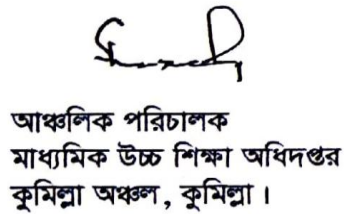 আঞ্চলিক পরিচালক
মাধ্যমিক উচ্চ শিক্ষা অধিদপ্তর
কুমিল্লা অঞ্চল, কুমিল্লা।